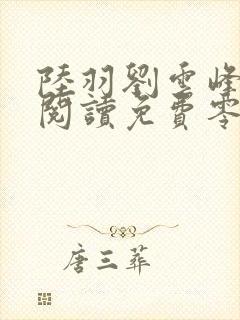 陸羽劉雪峰
閱讀免費零
唐三葬